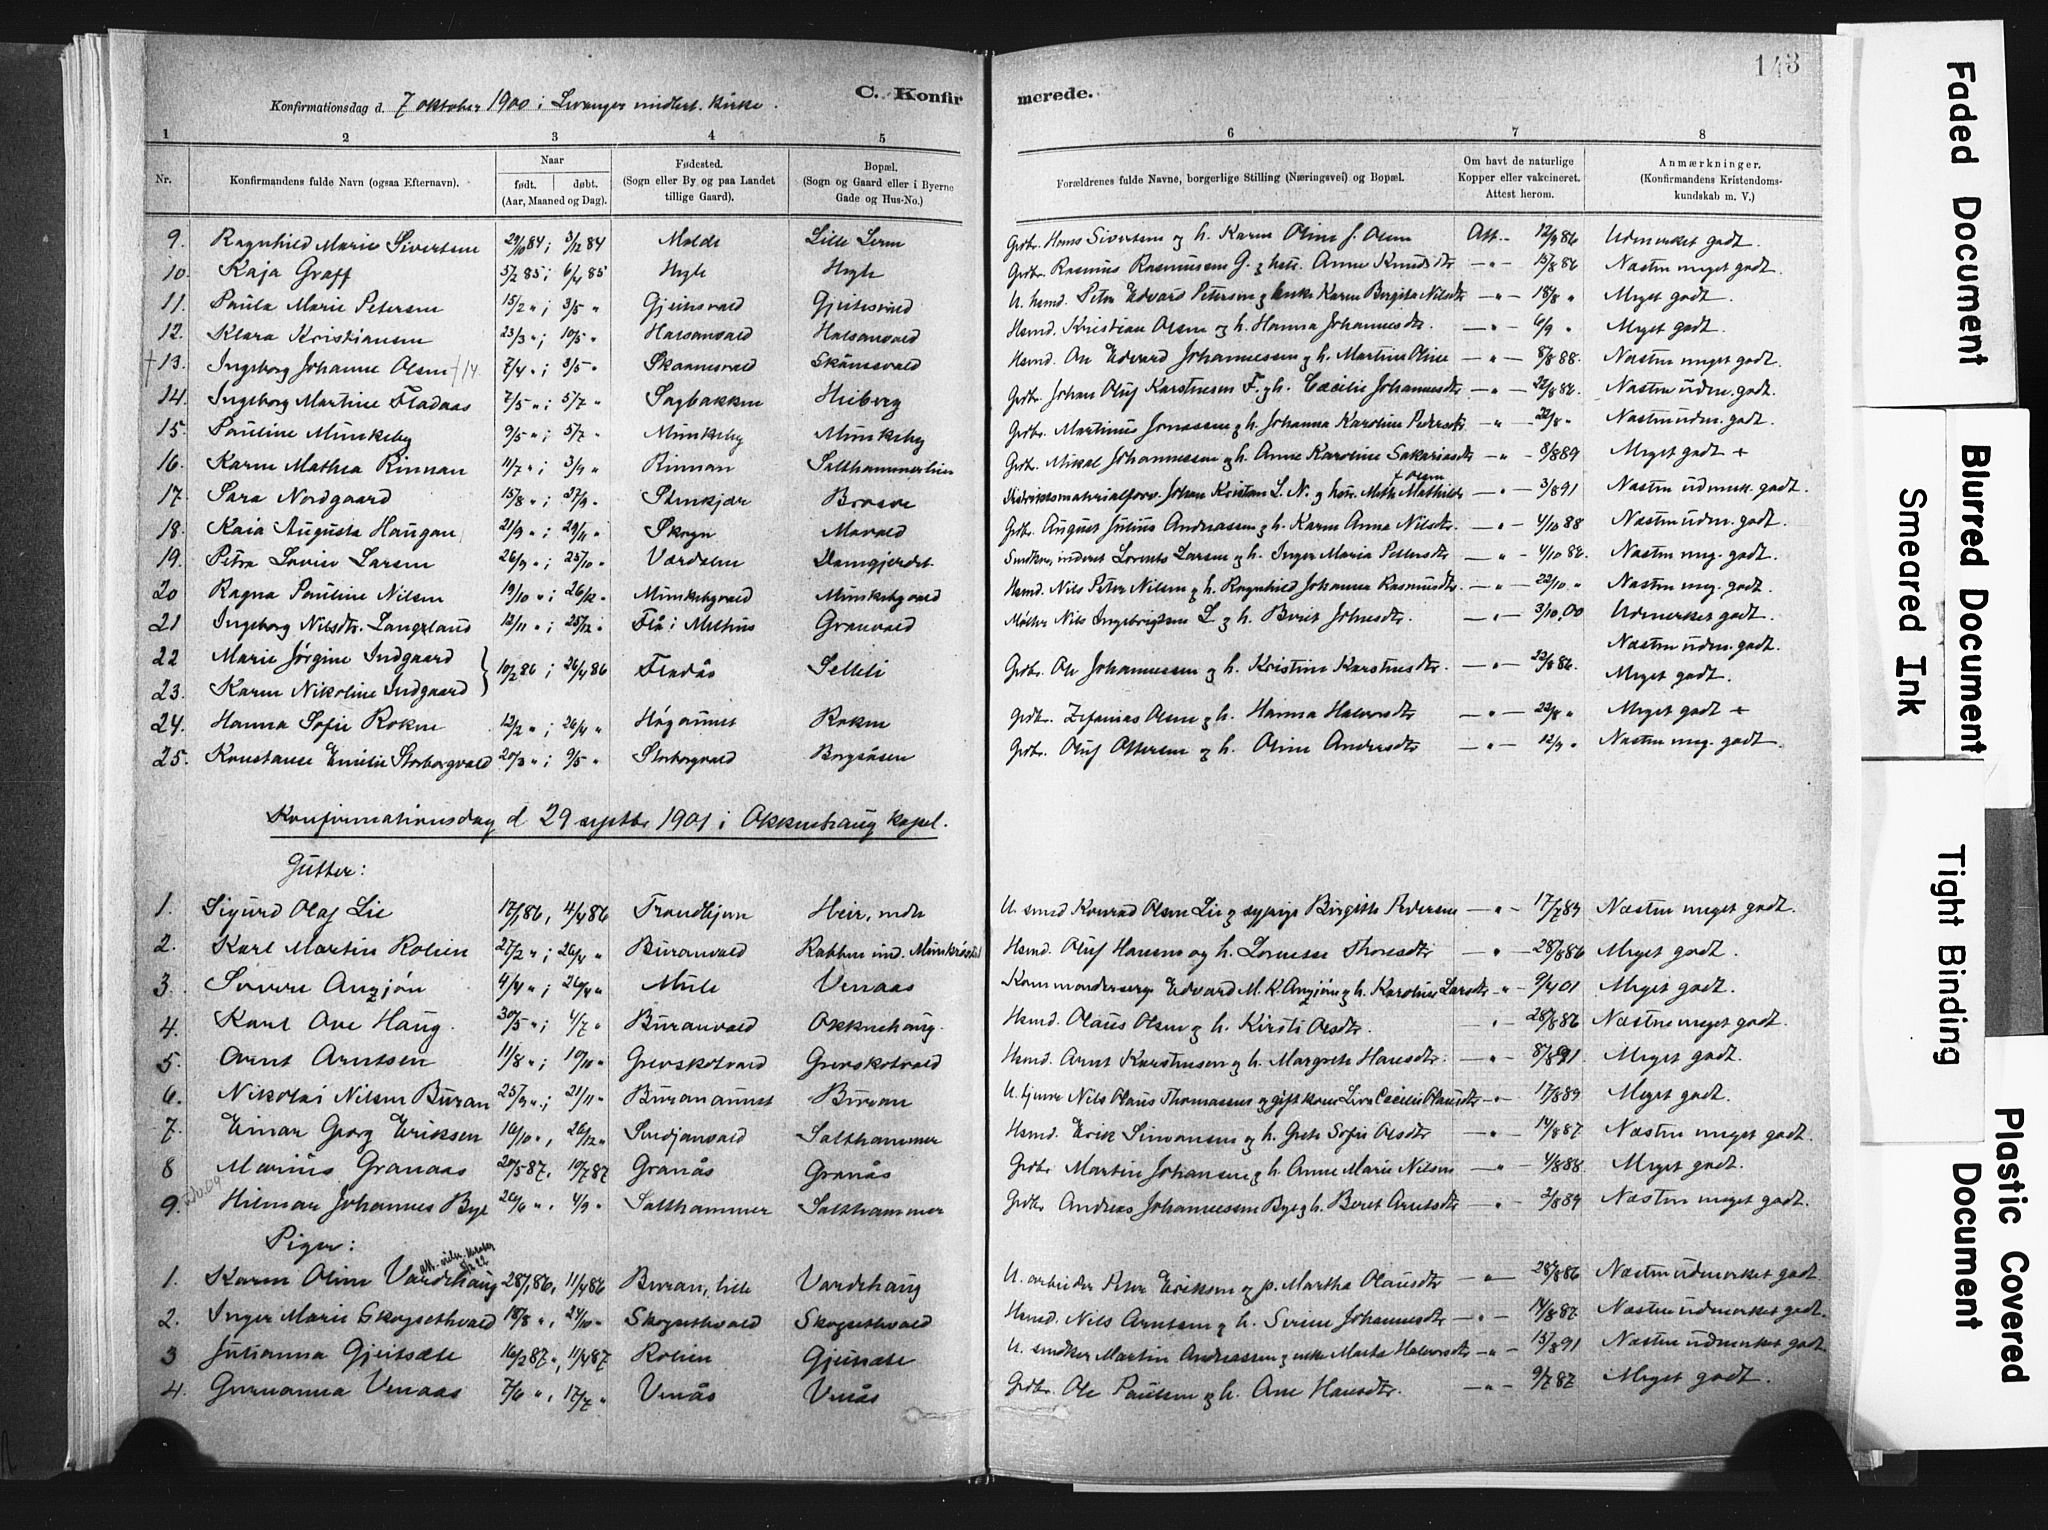 143
C. Konfirmerede.
Konfirmationsdag d. 7 oktober 1900 i Levanger midlert. kirke.
1 2 3 4 5 6 7 8
Nr. Konfirmandens fulde Navn (ogsaa Efternavn). Naar født. døbt. (Aar, Maaned og Dag). Fødested. (Sogn eller By og paa Landet tillige Gaard). Bopæl. (Sogn og Gaard eller i Byerne Gade og Hus-No.) Forældrenes fulde Navne, borgerlige Stilling (Næringsvei) og Bopæl. Om havt de naturlige Kopper eller vakcineret. Attest herom. Anmærkninger. (Konfirmandens Kristendomskundskab m. V.)
9. Ragnhild Marie Sivertsen 29/10 84; 3/12 84 Molde Lille Grdbr. Hans Sivertsen og h. Karen Oline f. Olsen Att. 12/9 86 Udmerket godt.
10. Kaja Graff 5/2 85; 6/4 85 Grdbr. Rasmus Rasmussen G. og hstr. Anne Knudsdtr —"— 15/8 86 Næsten meget godt.
11. Paula Marie Petersen 15/2 "; 3/5 " Gjeitesvald Gjeitesvald U. hsmd. Peter Edvard Petersen og enke Karen Bergita Nilsdtr —"— 18/8 " Meget godt.
12. Klara Kristiansen 23/3 "; 10/5 " Halsanvald Halsanvald Hsmd. Kristian Olsen og h. Hanna Johannesdtr. —"— 6/9 " Meget godt.
+13. Ingeborg Johanne Olsen +/14 7/4 "; 3/5 " Skaanesvald Skånesvald Hsmd. Ole Edvard Johannessen og h. Martine Oline —"— 8/8 88. Næsten meget godt.
14. Ingeborg Martine Fladaas 7/5 "; 5/7 " Sagbakken Heiberg Grdbr. Johan Oluf Karstensen F. og h. Cæcilie Johannesdtr —"— 22/8 86. Næsten udm. godt.
15. Pauline Munkeby 9/5 "; 5/7 " Munkeby Munkeby Grdbr. Martinus Jonassen og h. Johanna Karoline Pedersdtr —"— 22/8 " Næsten udm. godt.
16. Karen Mathea Rinnan 11/7 "; 3/9 " Rinnan Salthammerlien Grdbr. Mikal Johannessen og h. Anne Karoline Sakariasdtr —"— 3/8 89 Meget godt +
17. Sara Nordgaard 15/8 "; 27/9 " Stenkjær Brusve materialforv. Johan Kristian L. N. og hstr. Meth Mathilde f. Olsen —"— 3/8 91 Næsten udmerk. godt.
18. Kaia Augusta Haugan 21/9 "; 29/11 " Skogn Movald Grdbr. August Julius Andreassen og h. Karen Anna Nilsdtr. —"— 4/10 88 Næsten udm. godt.
19. Petra Lovise Larsen 26/9 "; 25/10 " Værdalen Damgjerdet Lorents Larsen og h. Inger Maria Pettersdtr —"— 4/10 86. Næsten meg. godt.
20 Ragna Pauline Nilsen 19/10 "; 26/12 " Munkebyvald Munkebyvald Hsmd. Nils Peter Nilsen og h. Ragnhild Johanna Rasmusdtr. —"— 22/10 " Næsten meg. godt.
21 Ingeborg Nilsdtr. Langeland 12/11 "; 25/12 " Flå i Melhus Granvald Møller Nils Ingebrigtsen L. og h. Berit Johnsdtr. —"— 3/10.00 Udmerket godt.
22 Marie Jørgine Indgaard Næsten udm. godt.
23. Karen Nikoline Indgaard } 10/2 86; 26/4 86 Fladås Selleli Grdbr. Ole Johannessen og h. Kristine Karstensdtr. —"— 22/8 86. Meget godt.
24. Hanna Sofie Roken 12/2 "; 26/4 " Høgaunet Roken Grdbr. Zefanias Olsen og h. Hanna Halvorsdtr —"— 22/8 " Meget godt +
25. Konstanse Emelie Storborgvald 20/3 "; 9/5 " Storborgvald Borgsåsen Grdbr. Oluf Ottersen og h. Oline Andersdtr —"— 12/9 " Næsten meg. godt.
Konfirmationsdag d 29 septbr. 1901 i Okkenhaug kapel.
Gutter:
1. Sigurd Olaf Lie 17/1 86, 4/4 86 Trondhjem Heir, nedre U. smed Konrad Olsen Lie og sypige Birgitte Pedersen —"— 17/7 89 Næsten meget godt.
2. Karl Martin Rolien 27/2 "; 26/4 " Buranvald Rabben ind. Munkrøstad Hsmd. Oluf Hansen og h. Lornesse Thoresdtr —"— 28/8 86 Meget godt.
3. Sverre Anzjøn 4/4 "; 26/4 " Mule Venaas Kommandersergt Edvard M. K. Anzjøn og h. Karoline Larsdtr —"— 9/4 01 Meget godt.
4. Karl Ove Haug. 30/5 "; 4/7 " Buranvald Okkenhaug. Hsmd. Olaus Olsen og h. Kirsti Olsdtr. —"— 28/8 86 Næsten meget godt.
5. Arnt Arntsen 11/8 "; 10/11 " Grevskotvald Grevskotvald Hsmd. Arnt Karstensen og h. Margrete Hansdtr: —"— 8/8 91 Meget godt.
6. Nikolai Nilsen Buran 25/9 "; 21/11 " Buranaunet Buran U. tjener Nils Olaus Thomassen og gift kone Live Cecilie Olausdtr —"— 17/8 89 Meget godt.
7. Einar Georg Eriksen 16/10 ", 26/12 " Salthammer Hsmd. Erik Simonsen og h. Grete Sofie Olsdtr —"— 14/8 87 Næsten meget godt.
8 Marius Granaas 20/5 87, 10/7 87 Granås Granås Grdbr. Martin Johansen og h. Anne Marie Nilsen —"— 4/8 88. Meget godt.
9. Hilmar Johannes Bye 26/6 ", 4/9 " Salthammer Salthammer Grdbr. Andreas Johannessen Bye og h. Beret Arntsdtr —"— 2/8 89 Næsten meget godt.
Piger:
1. Karen Oline Vardehaug 28/1 86, 11/4 86 Buran, lille Vardehaug U. arbeider Peter Eriksen og p. Martha Olausdtr —"— 28/8 86 Næsten udmerket godt
2. Inger Marie Skogsethvald 18/8 ", 24/10 " Skogsethvald Skogsethvald Hsmd. Nils Arntsen og h. Serine Johannesdtr —"— 14/8 87 Næsten udmerket godt.
3 Julianna Gjeitsæte 16/2 87, 11/4 87 Rolien Gjeitsæte U. snedker Martin Andreassen og enke Marta Halvorsdtr —"— 15/8 91 Næsten udmerket godt
4. Gurianna Venaas 7/6 ", 17/7 " Venås Venås Grdbr. Ole Paulsen og h. Ane Hansdtr. —"— 9/7 87 Meget godt.
Faded Document
Blurred Document
Smeared Ink
Tight Binding
Plastic Covered
Document